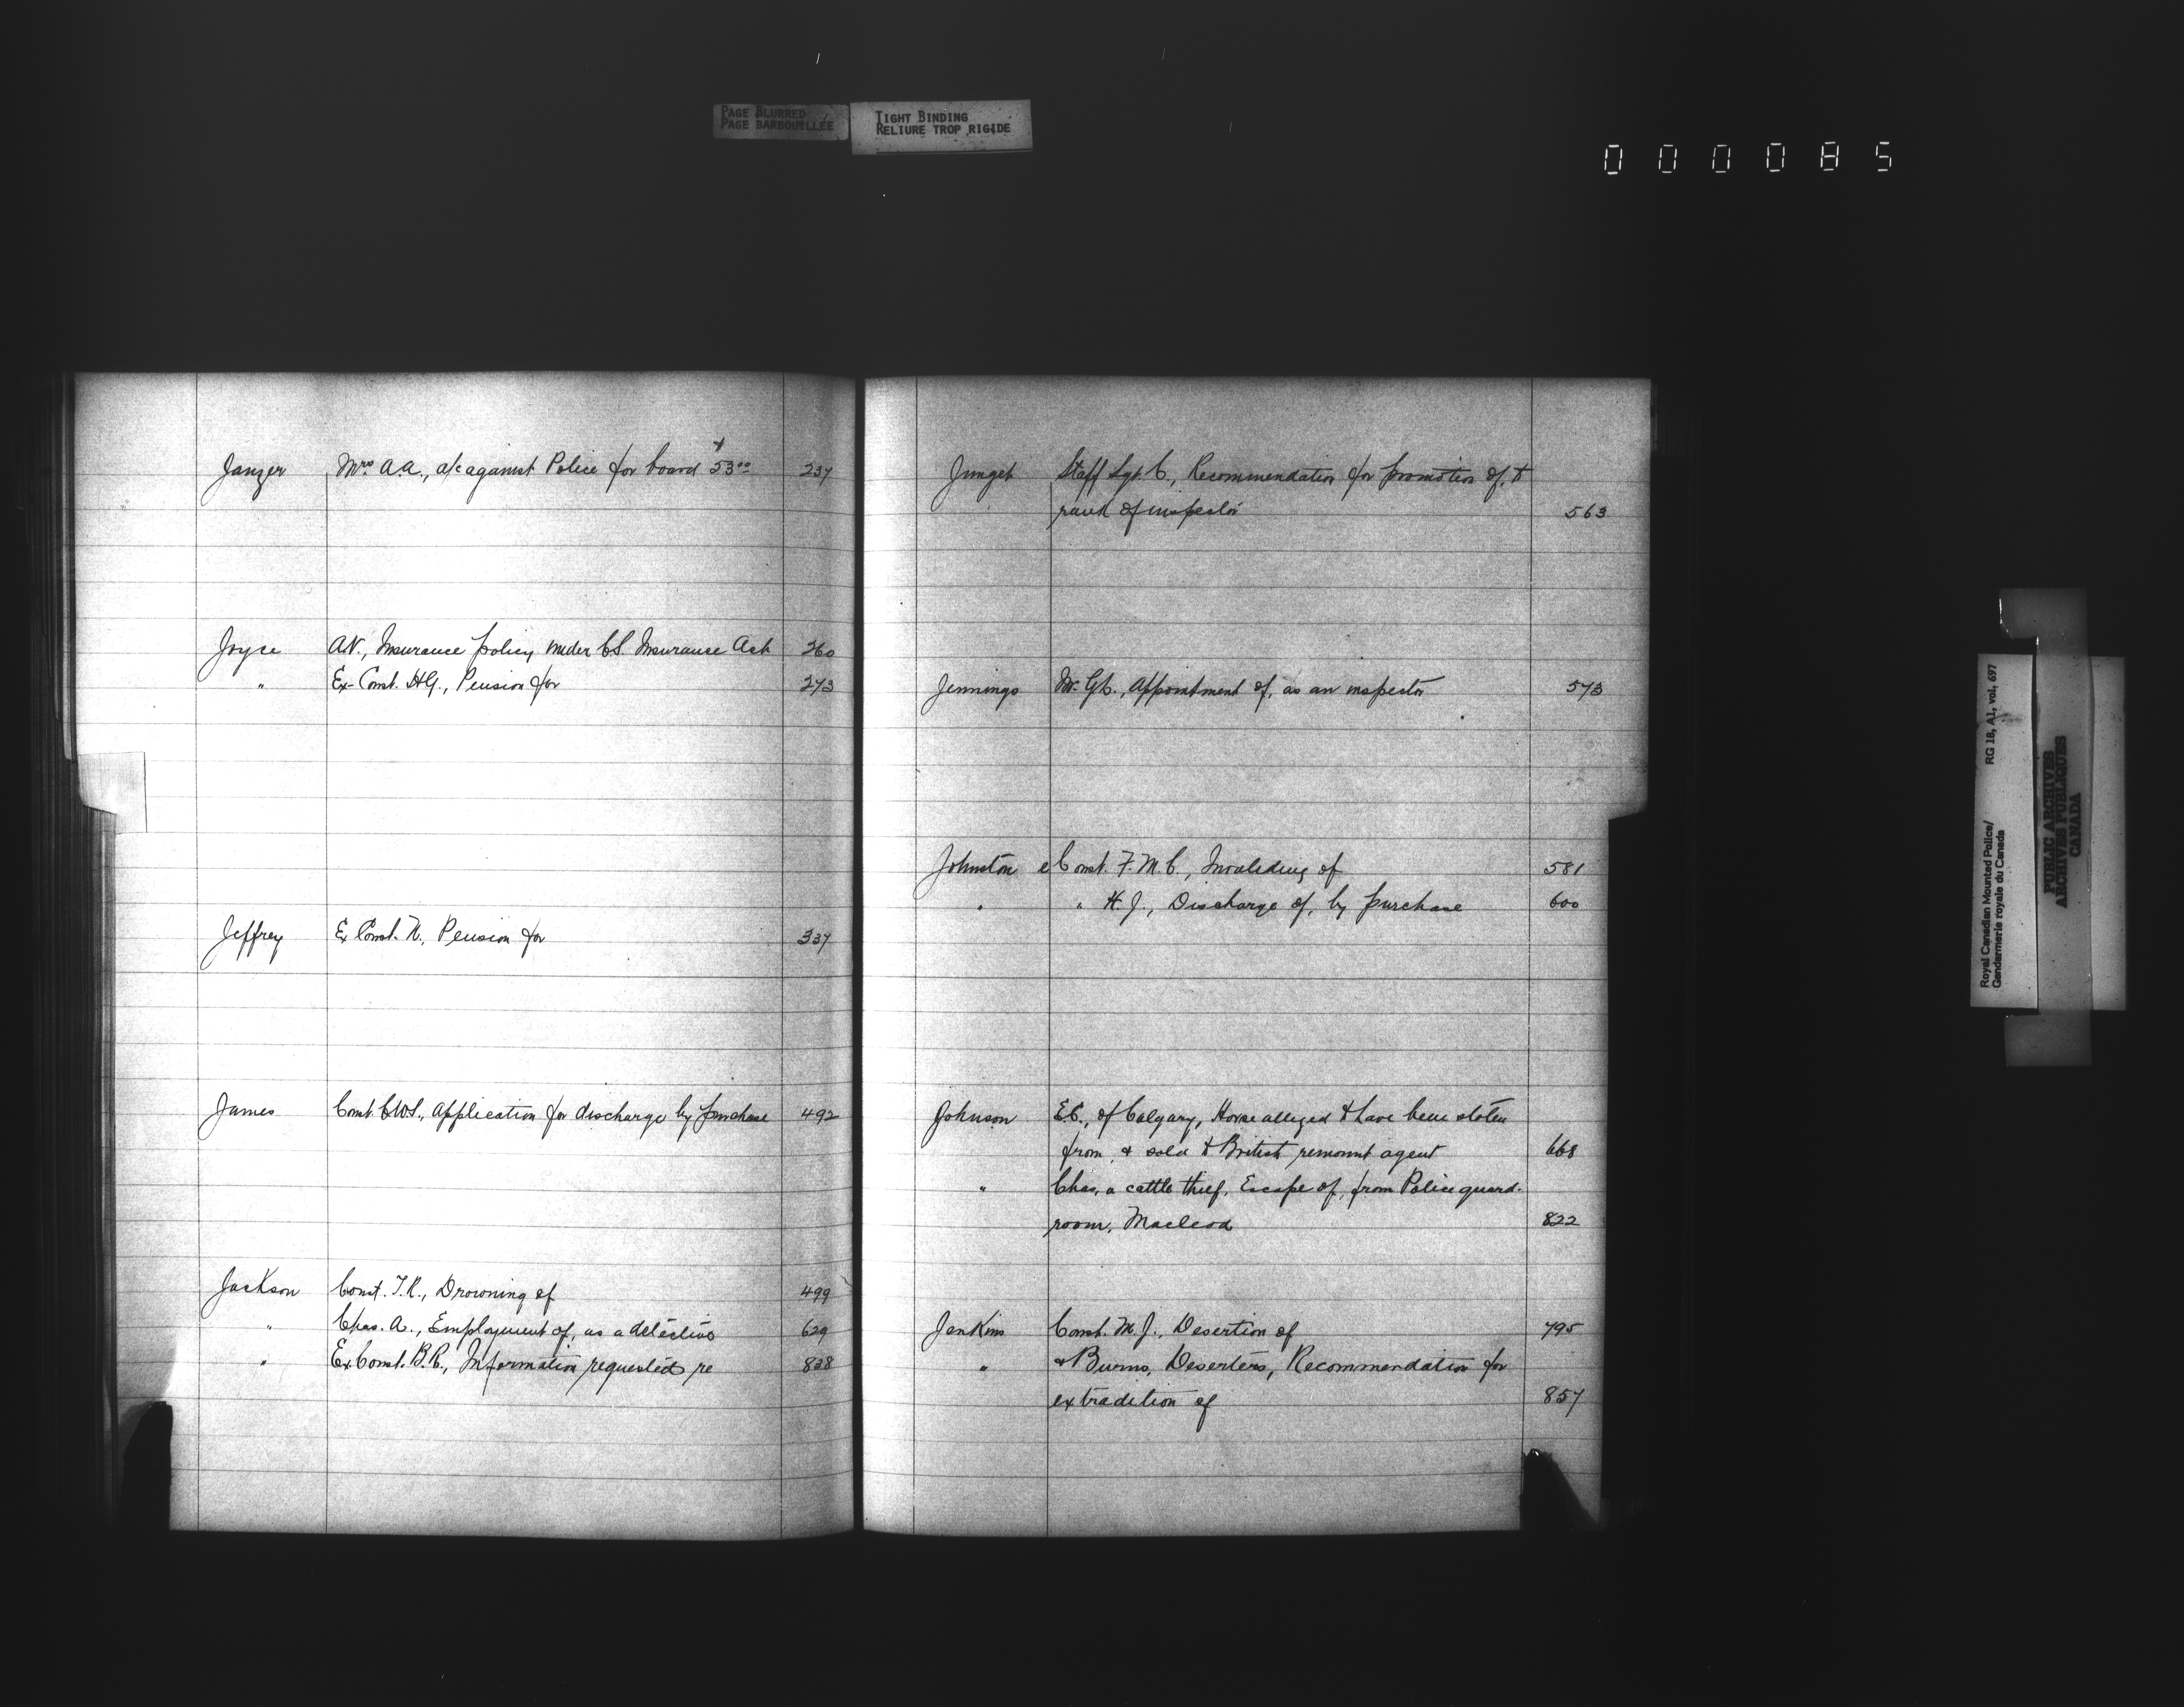 PAGE BLURRED
PAGE BARBOUILLÉE
TIGHT BINDING
RELIURE TROP RIGIDE
000085
Janzer Mrs A.A., a/c against Police for board $53.00 237
Joyce A.N., Insurance policy under C.S. Insurance Act 260
" Ex-Const. H.G., Pension for 273
Jeffrey Ex Const. N., Pension for 337
James Const. C.W.S., Application for discharge by purchase 492
Jackson Const. T.R., Drowning of 499
" Chas. A., Employment of, as a detective 629
" Ex Const. B.R., Information requested re 838
Junget Staff Sgt. C., Recommendation for promotion of, to
rank of inspector 563
Jennings Mr. G.L., Appointment of, as an inspector 573
Johnston Const. F.M.C., Invaliding of 581
" " H.J., Discharge of, by purchase 600
Johnson E.C., of Calgary, Horse alleged to have been stolen
from, & sold to British remount agent 668
" Chas, a cattle thief, Escape of, from Police guard-
room, Macleod 822
Jenkins Const. M.J., Desertion of 795
" & Burns, Deserters, Recommendation for
extradition of 857
Royal Canadian Mounted Police/ RG 18, A1, vol. 697
Gendarmerie royale du Canada
PUBLIC ARCHIVES
ARCHIVES PUBLIQUES
CANADA